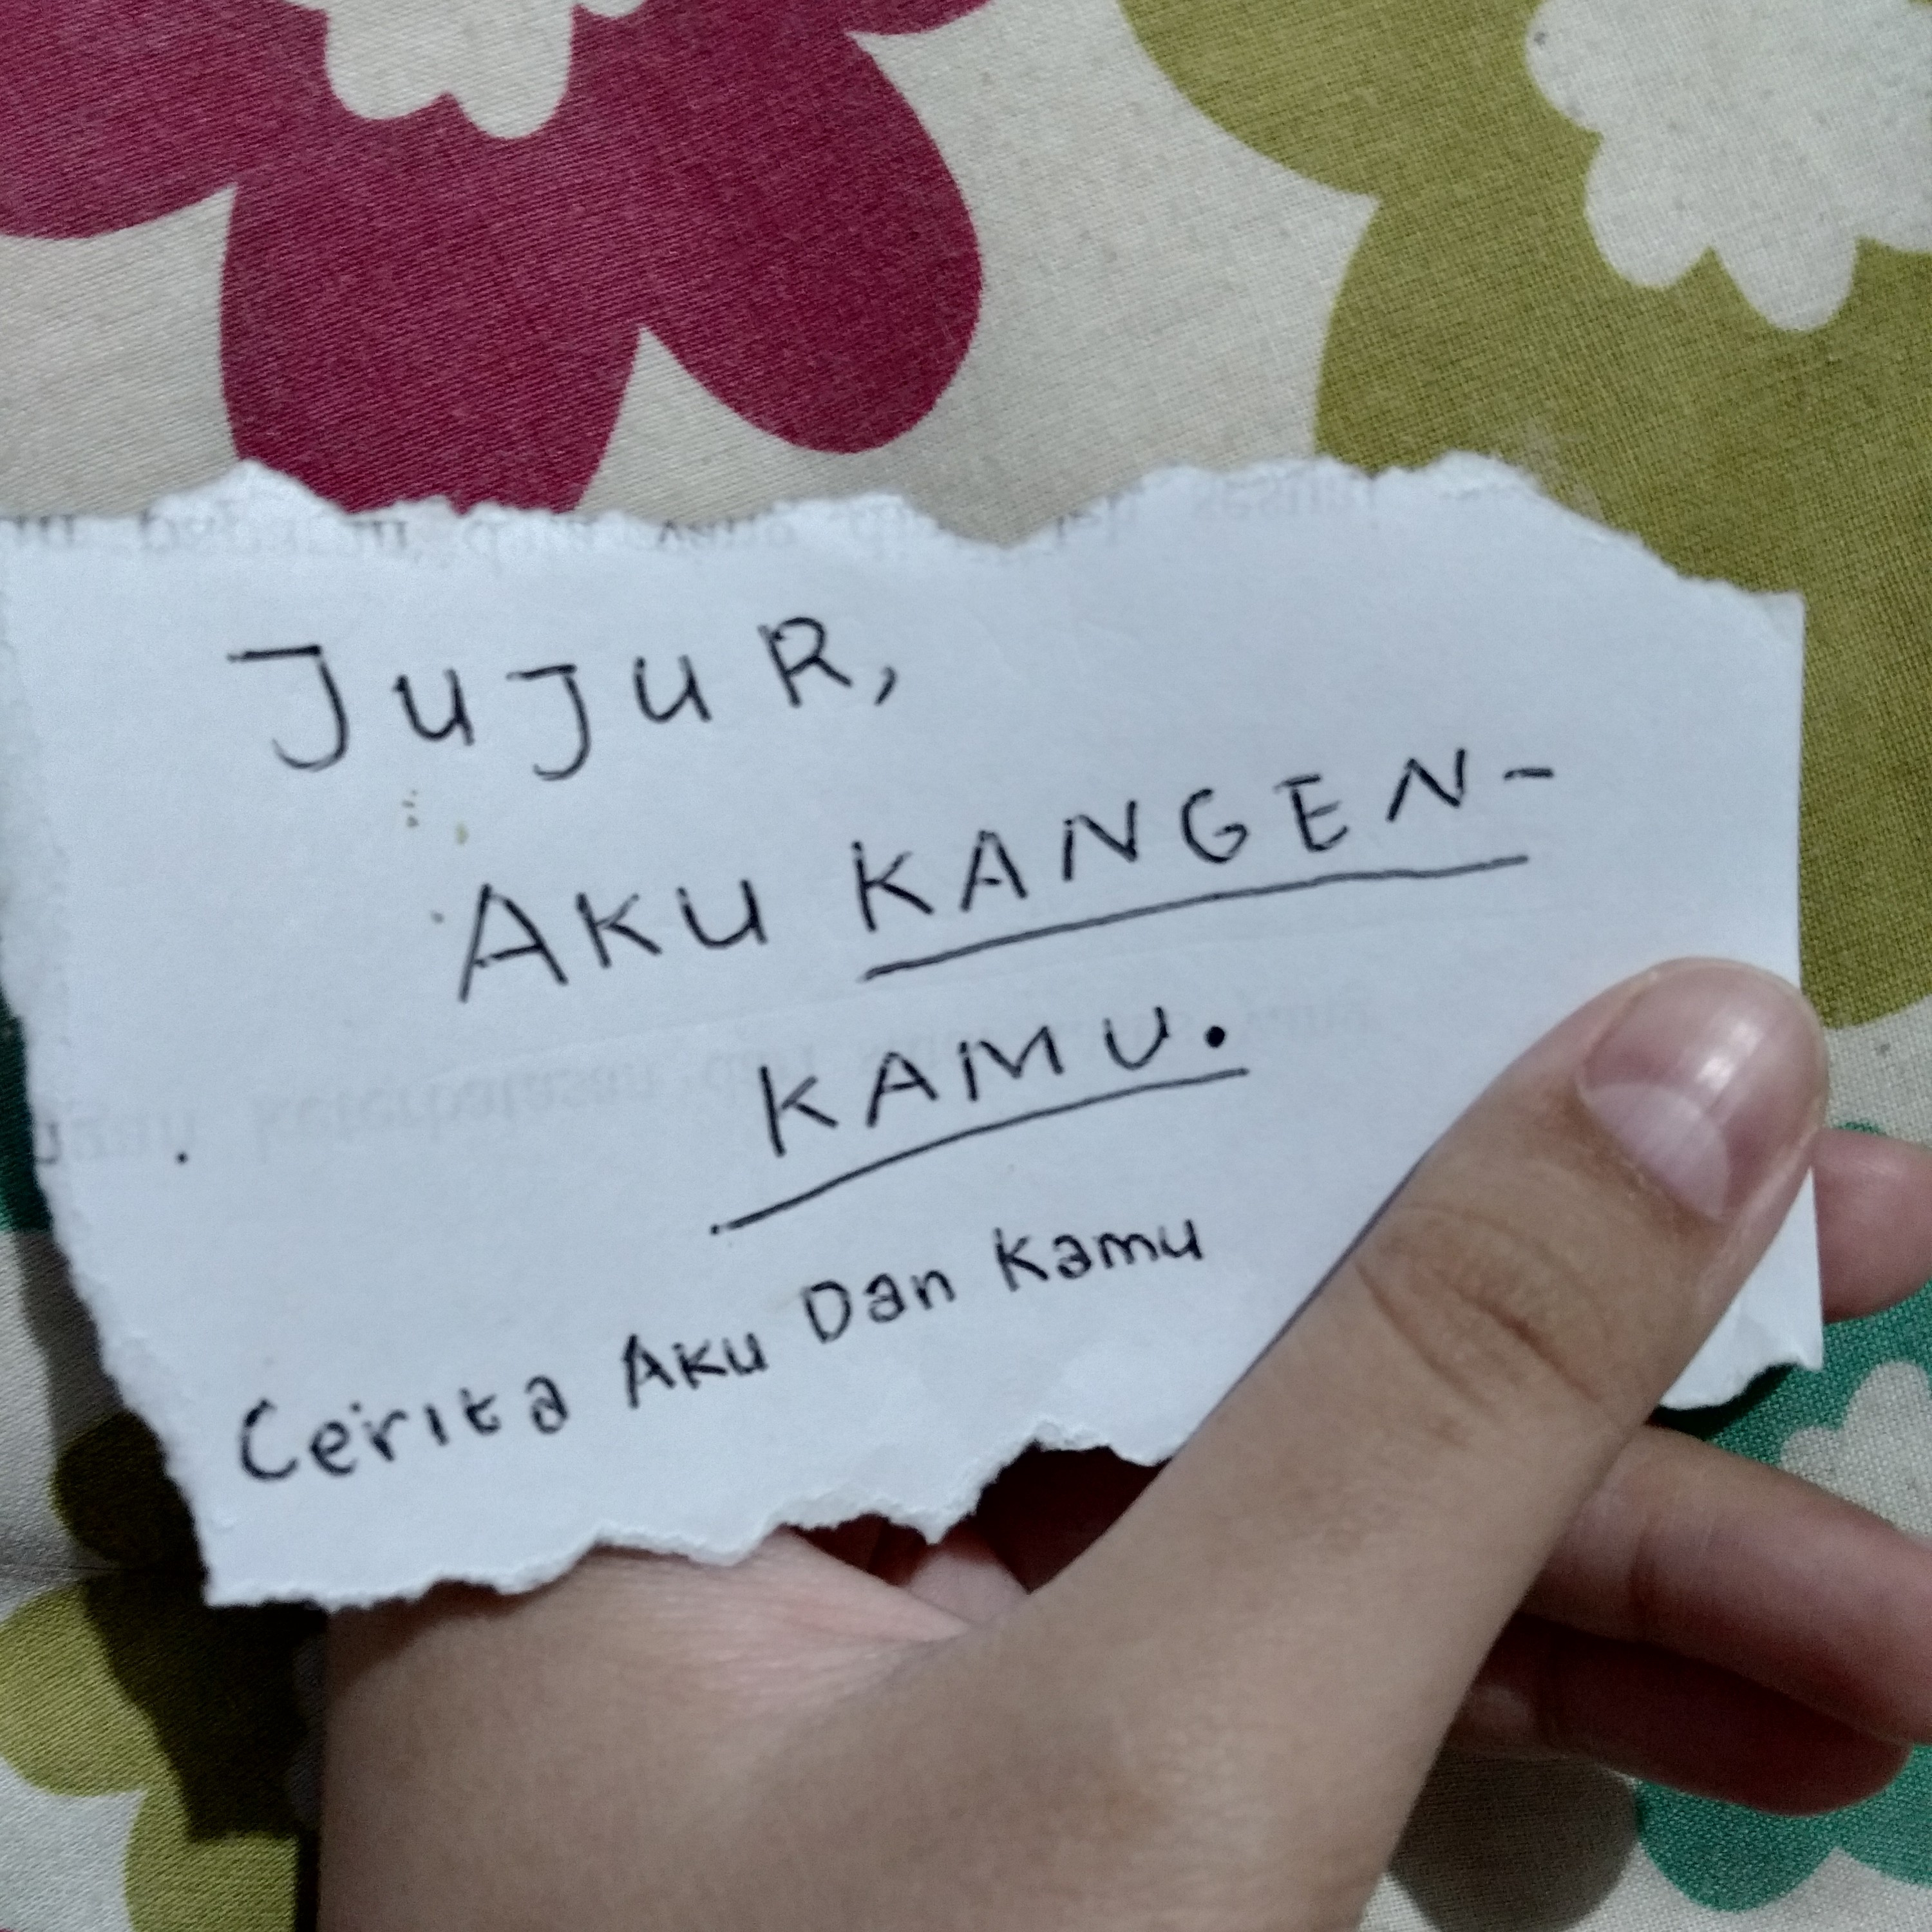 JUJUR,
AKU KANGEN-
KAMU.
Cerita Aku Dan Kamu